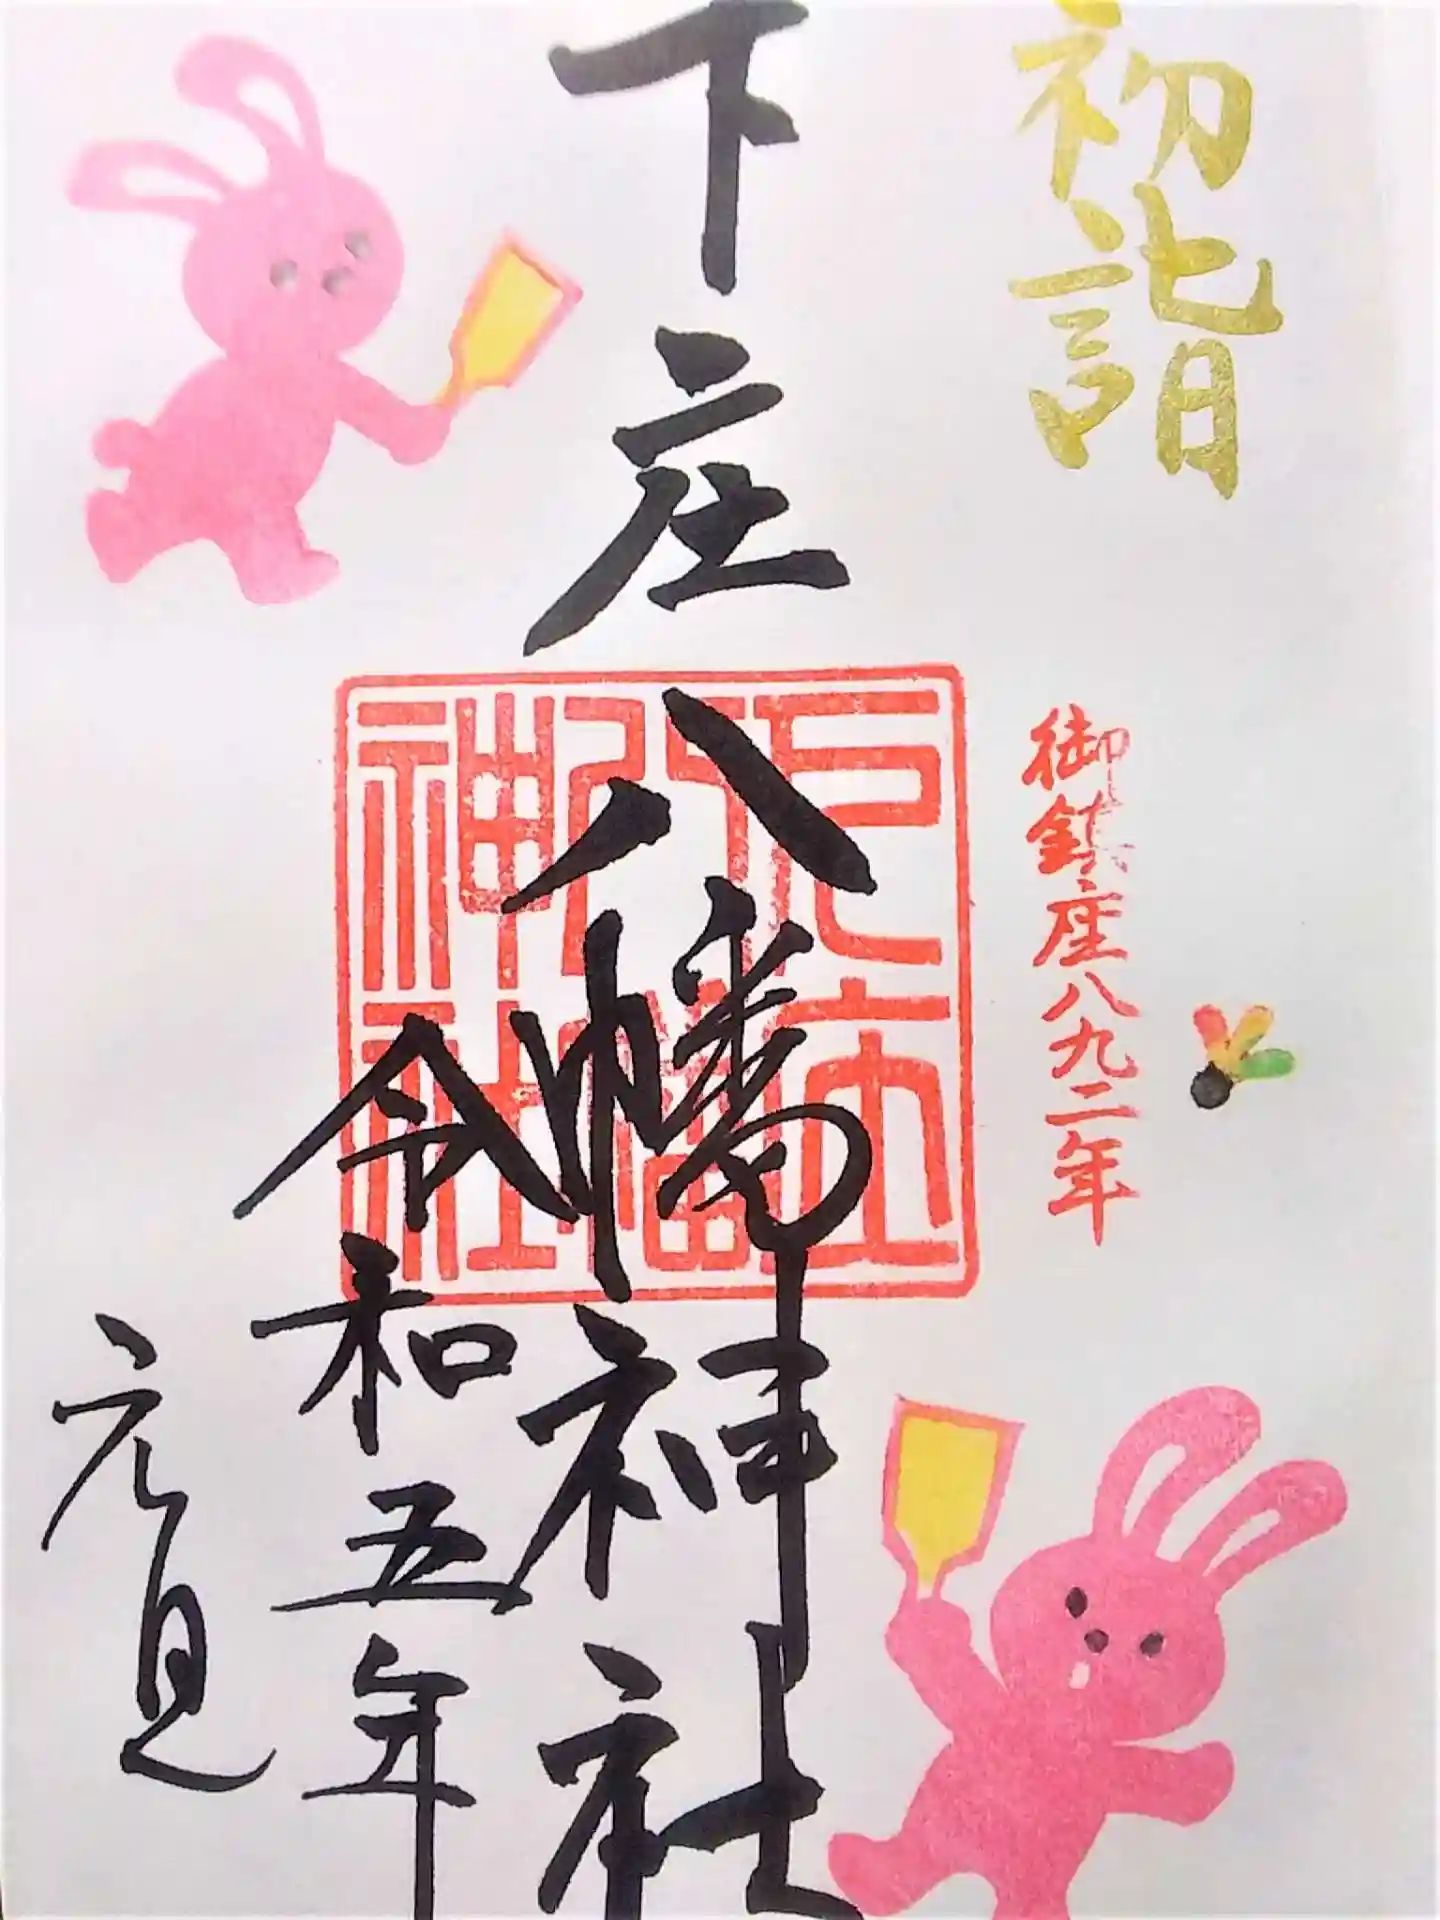 初詣
御鎮座八九二年
下庄八幡神社
下庄
八幡
神社
令和五年
元旦